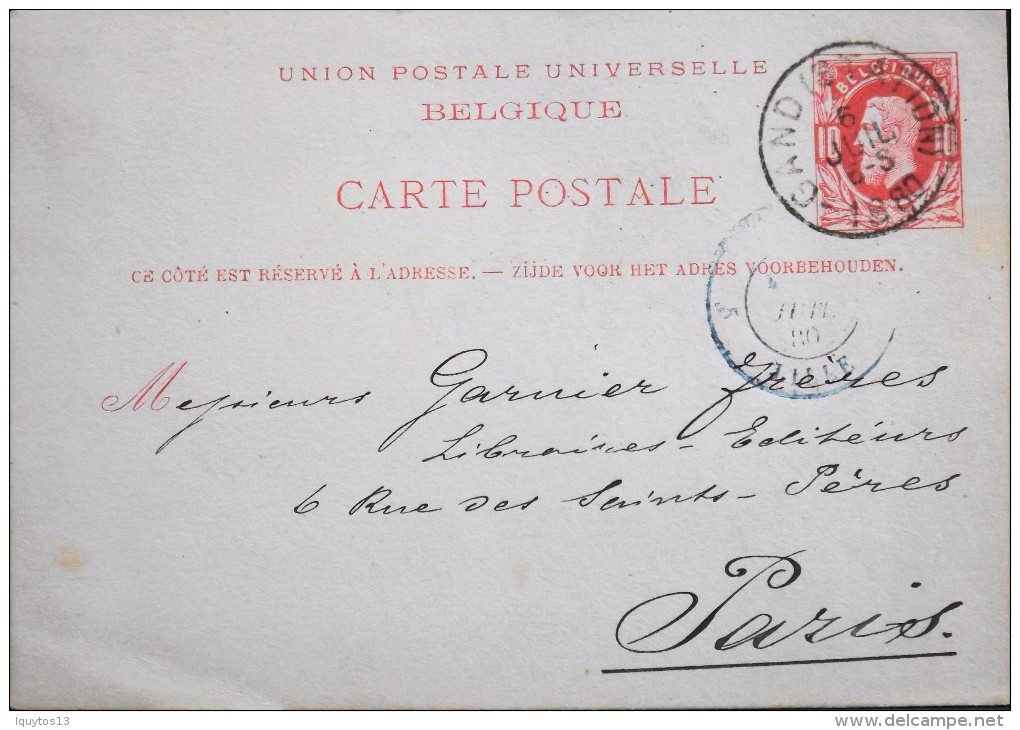 UNION POSTALE UNIVERSELLE
BELGIQUE
CARTE POSTALE
CE CÔTÉ EST RÉSERVÉ À L'ADRESSE. — ZIJDE VOOR HET ADRES VOORBEHOUDEN.
BELGIQUE
10
GAND (STATION)
6
JUIL
1880
JUIL
80
LILLE
Messieurs Garnier frères
Libraires-Editeurs
6 Rue des Saints-Pères
Paris.
lquytos13
delcampe.net